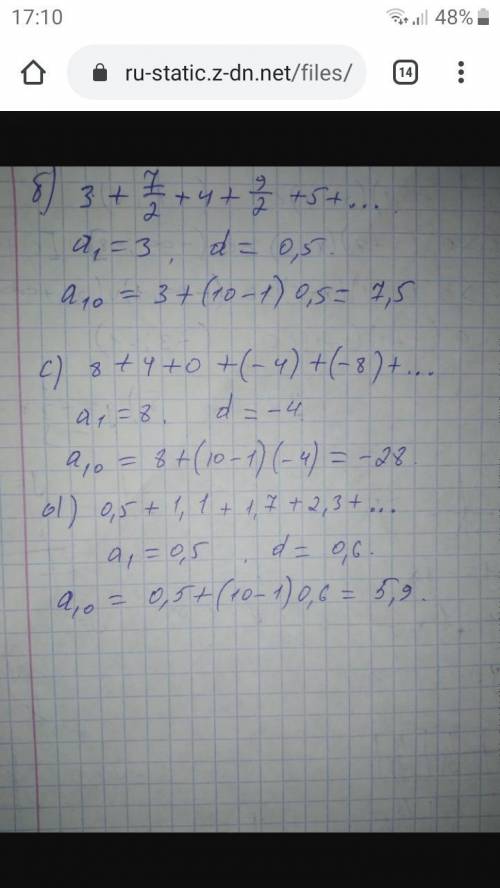 17:10 48%
ru-static.z-dn.net/files/ 14
б) 3 + 7/2 + 4 + 9/2 + 5 + ...
a₁ = 3, d = 0,5.
a₁₀ = 3 + (10 - 1) 0,5 = 7,5
c) 8 + 4 + 0 + (-4) + (-8) + ...
a₁ = 8. d = -4
a₁₀ = 8 + (10 - 1) (-4) = -28.
d) 0,5 + 1,1 + 1,7 + 2,3 + ...
a₁ = 0,5, d = 0,6.
a₁₀ = 0,5 + (10 - 1) 0,6 = 5,9.